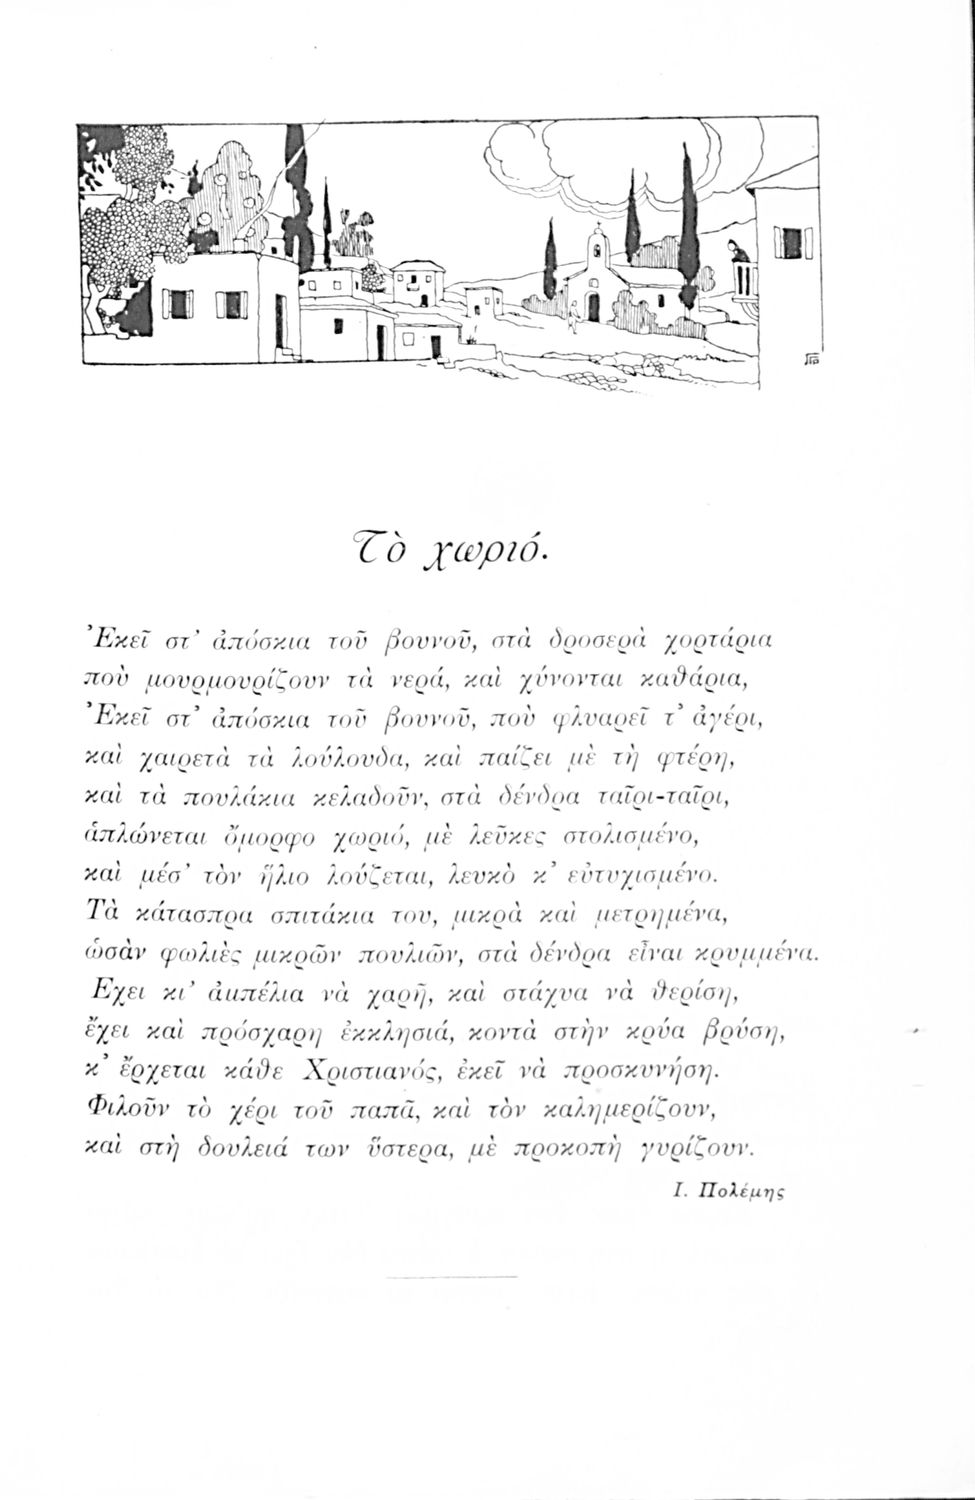 Τὸ χωριό.
Ἐκεῖ στ' ἀπόσκια τοῦ βουνοῦ, στὰ δροσερὰ χορτάρια
ποὺ μουρμουρίζουν τὰ νερά, καὶ χύνονται καθάρια,
Ἐκεῖ στ' ἀπόσκια τοῦ βουνοῦ, ποὺ φλυαρεῖ τ' ἀγέρι,
καὶ χαιρετὰ τὰ λούλουδα, καὶ παίζει μὲ τὴ φτέρη,
καὶ τὰ πουλάκια κελαδοῦν, στὰ δένδρα ταῖρι-ταῖρι,
ἁπλώνεται ὄμορφο χωριό, μὲ λεῦκες στολισμένο,
καὶ μέσ' τὸν ἥλιο λούζεται, λευκὸ κ' εὐτυχισμένο.
Τὰ κάτασπρα σπιτάκια του, μικρὰ καὶ μετρημένα,
ὡσὰν φωλιὲς μικρῶν πουλιῶν, στὰ δένδρα εἶναι κρυμμένα.
Ἔχει κι' ἀμπέλια νὰ χαρῇ, καὶ στάχυα νὰ θερίσῃ,
ἔχει καὶ πρόσχαρη ἐκκλησιά, κοντὰ στὴν κρύα βρύση,
κ' ἔρχεται κάθε Χριστιανός, ἐκεῖ νὰ προσκυνήσῃ.
Φιλοῦν τὸ χέρι τοῦ παπᾶ, καὶ τὸν καλημερίζουν,
καὶ στὴ δουλειά των ὕστερα, μὲ προκοπὴ γυρίζουν.
Ι. Πολέμης